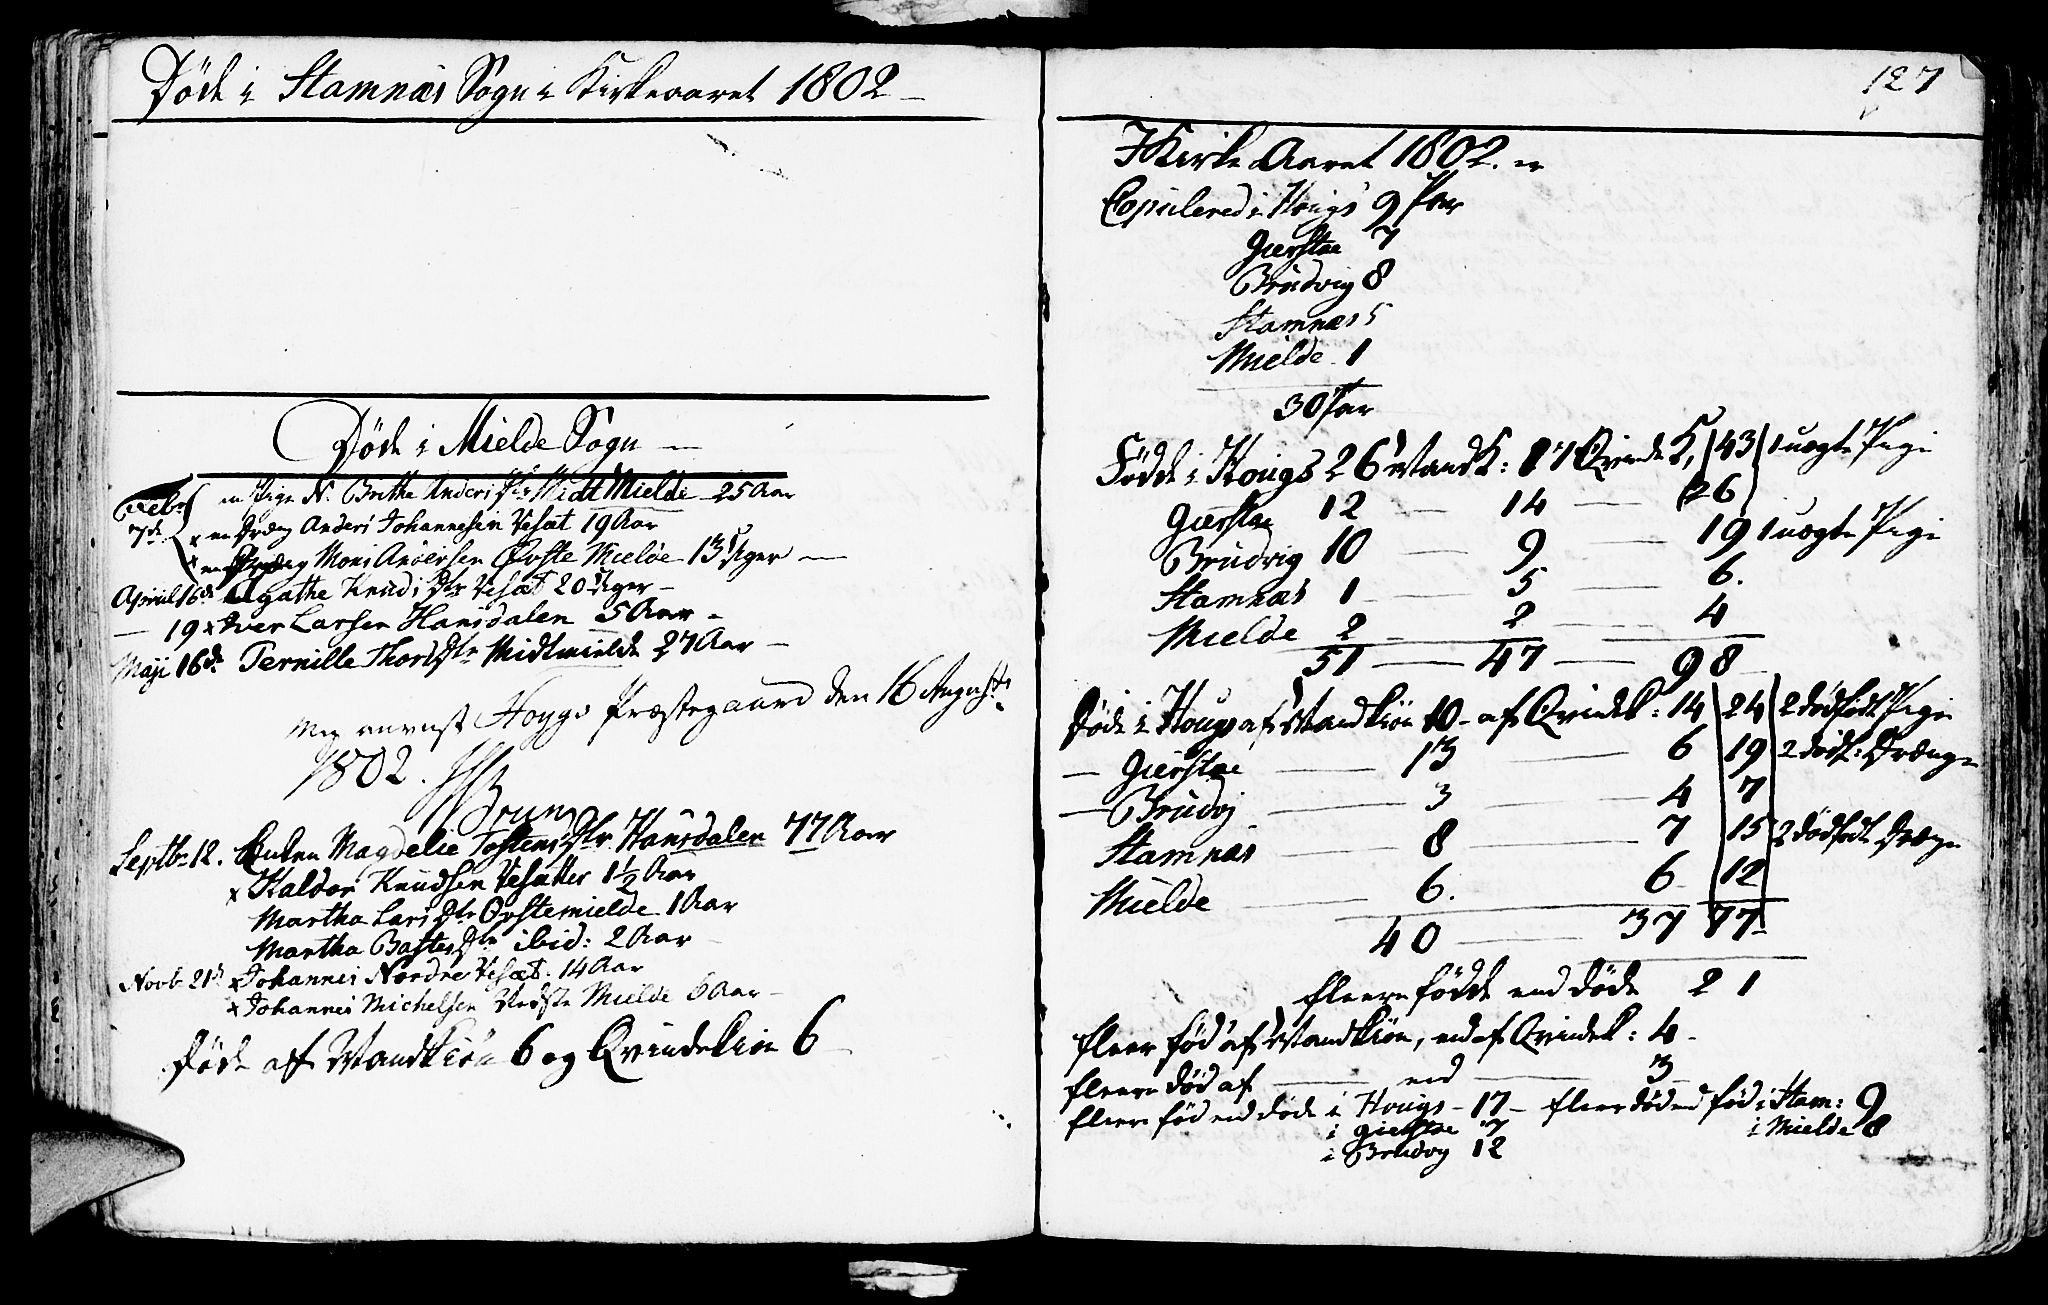 Døde i Stamnæs Sogn i Kirkeaaret 1802 –
Døde i Mielde Sogn –
Febr 7de en Pige N. Brithe Anders Dtr Midt Mielde 25 Aar
x en Dreng Anders Johannesen Vesæt 19 Aar
x en Dreng Mons Andersen Øvste Mielde 13 Uger –
April 16de Agathe Knuds Dtr Vesæt 20 Uger –
– 19 x Iver Larsen Hansdalen 5 Aar –
Maji 16de Pernille Thors Dtr Midtmielde 27 Aar –
Hougs Præstegaard den 16 August
1802.
Brun
Septbr 12. Enken Magdelie Tostens Dtr Hansdalen 77 Aar
x Haldor Knudsen Vesætter 1½ Aar
Martha Lars Dtr Øvstemielde 1 Aar
Martha Bastes Dtr ibid: 2 Aar
Novbr 21de x Johannes Nordre Vesæt. 14 Aar
x Johannes Michelsen Nedste Mielde 6 Aar –
Døde af Mandkiøn 6 og Qvindekiøn 6
127
I Kirke Aaret 1802. er
Copulered i Hougs 9 Par
Gierstæ 7
Brudvig 8
Stamnæs 5
Mielde 1
30 Par
Fødde i Hougs 26 Mandk: 17 Qvindek, 43 1 uægte Pige
Gierstæ 12 – 14 – 26
Brudvig 10 – 9 – 19 1 uægte Pige
Stamnæs 1 – 5 – 6.
Mielde 2 – 2 – 4
51 – 47 – 98
Døde i Hougs af Mandkiøn 10 – af Qvindek: 14 24 2 dødfødt Pige
– Gierstæ – 13 – 6 19 2 dødf: Drænge
– Brudvg – 3 – 4 7
Stamnæs – 8 – 7 15 2 dødfødt Drænge
Mielde – 6. – 6 12
40 – 37 77
fleere fødde end døde 21
fleer fød af Mandkiøn, end af Qvindek: 4 –
fleere død af – end – 3
fleere fød end døde i Hougs – 17 – fleer død end fød i Stam: 9
i Gierstæ 7 i Mielde 8
i Brudvg 12